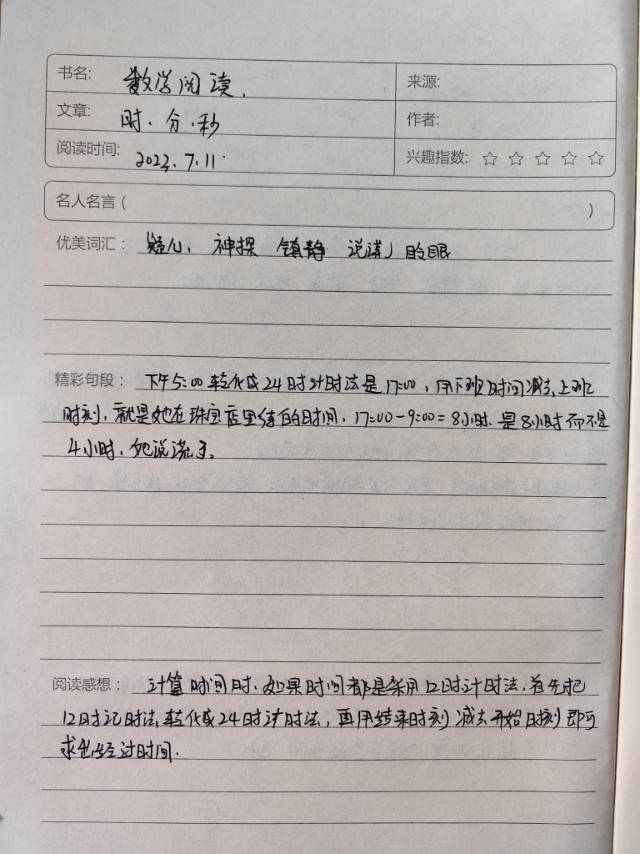 书名: 数学阅读.
来源:
文章: 时.分.秒
作者:
阅读时间: 2022.7.11.
兴趣指数: ☆ ☆ ☆ ☆ ☆
名人名言 ( )
优美词汇: 疑心、神探 镇静 说谎 眨眼
精彩句段: 下午5:00转化成24时计时法是17:00,用下班时间减去上班
时刻,就是她在珠宝店里待的时间,17:00-9:00=8小时.是8小时而不是
4小时,她说谎了。
阅读感想: 计算时间时.如果时间都是采用12时计时法,首先把
12时记时法转化成24时计时法,再用结束时刻减去开始时刻即可
求出经过时间.